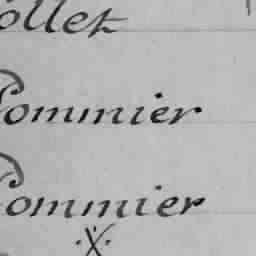 ollet
Pommier
Pommier
.X.